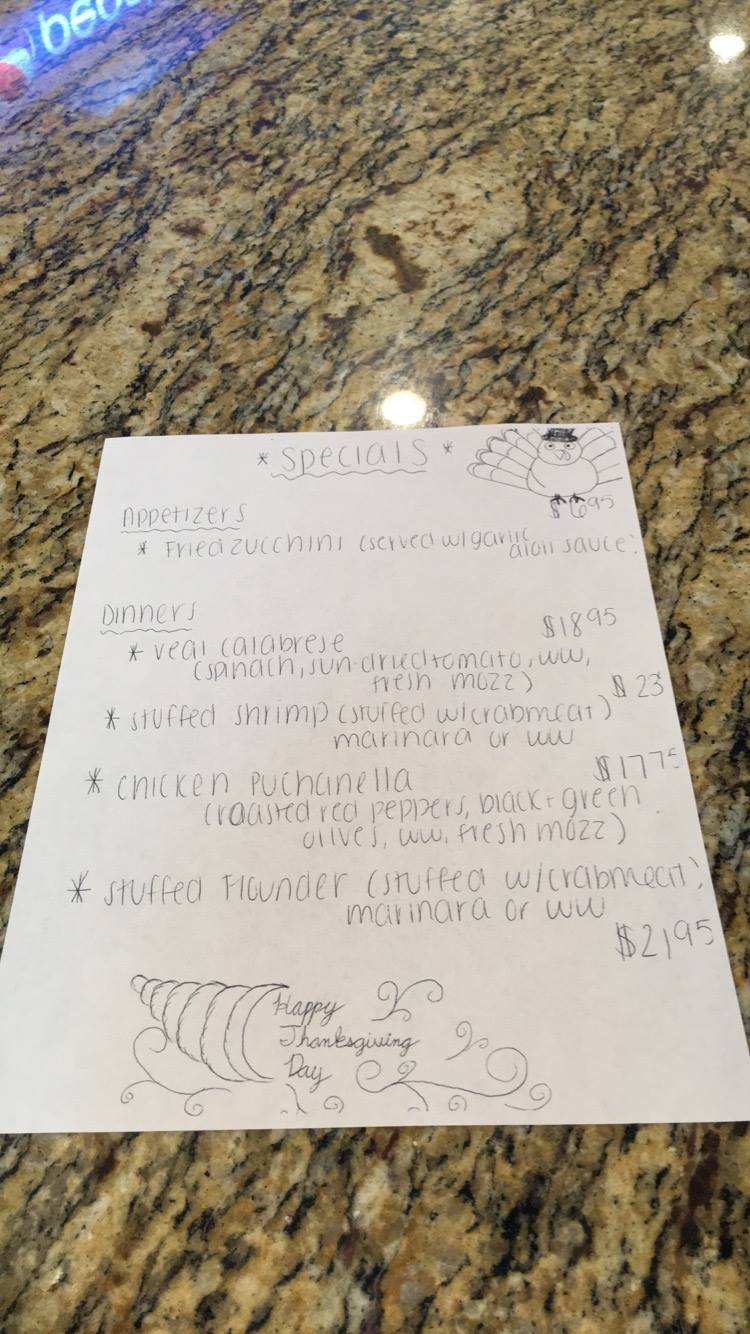 * Specials *
Appetizers
$6 95
* Fried zucchini (served w/garlic
aioli sauce)
Dinners
* veal calabrese $18 95
(spinach, sun-dried tomato, ww,
fresh mozz)
* stuffed shrimp (stuffed w/crabmeat) $23
marinara or ww
* chicken Puchanella $17 75
(roasted red peppers, black + green
olives, ww, fresh mozz)
* stuffed Flounder (stuffed w/crabmeat)
marinara or ww
$21 95
Happy
Thanksgiving
Day